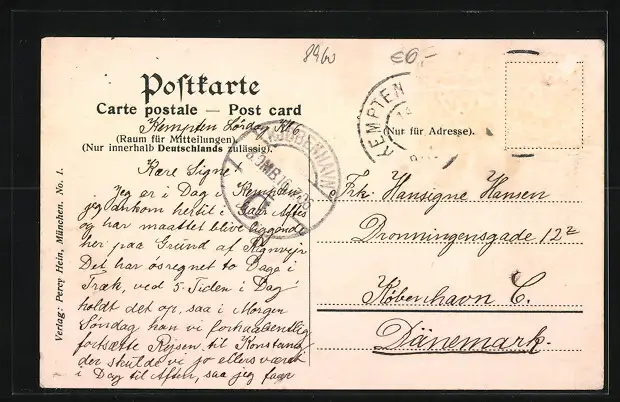 8960
€6,-
Postkarte
Carte postale — Post card
Kempten Lördag Kl 6
(Raum für Mitteilungen).
(Nur innerhalb Deutschlands zulässig).
KEMPTEN
(Nur für Adresse).
KJØBENHAVN
Kære Signe
Jeg er i Dag i Kempten,
jeg ankom hertil i Gaar Aftes
og har maattet blive liggende
her paa Grund af Regnvejr
Det har ösregnet to Dage i
Træk, ved 5-Tiden i Dag
holdt det op, saa i Morgen
Söndag kan vi forhaabentlig
fortsætte Rejsen til Konstanz
der skulde vi jo ellers været
i Dag til Aften, saa jeg faar
Frk: Hansigne Hansen
Dronningensgade 12²
København C.
Dänemark.
Verlag: Percy Hein, München. No. 1.